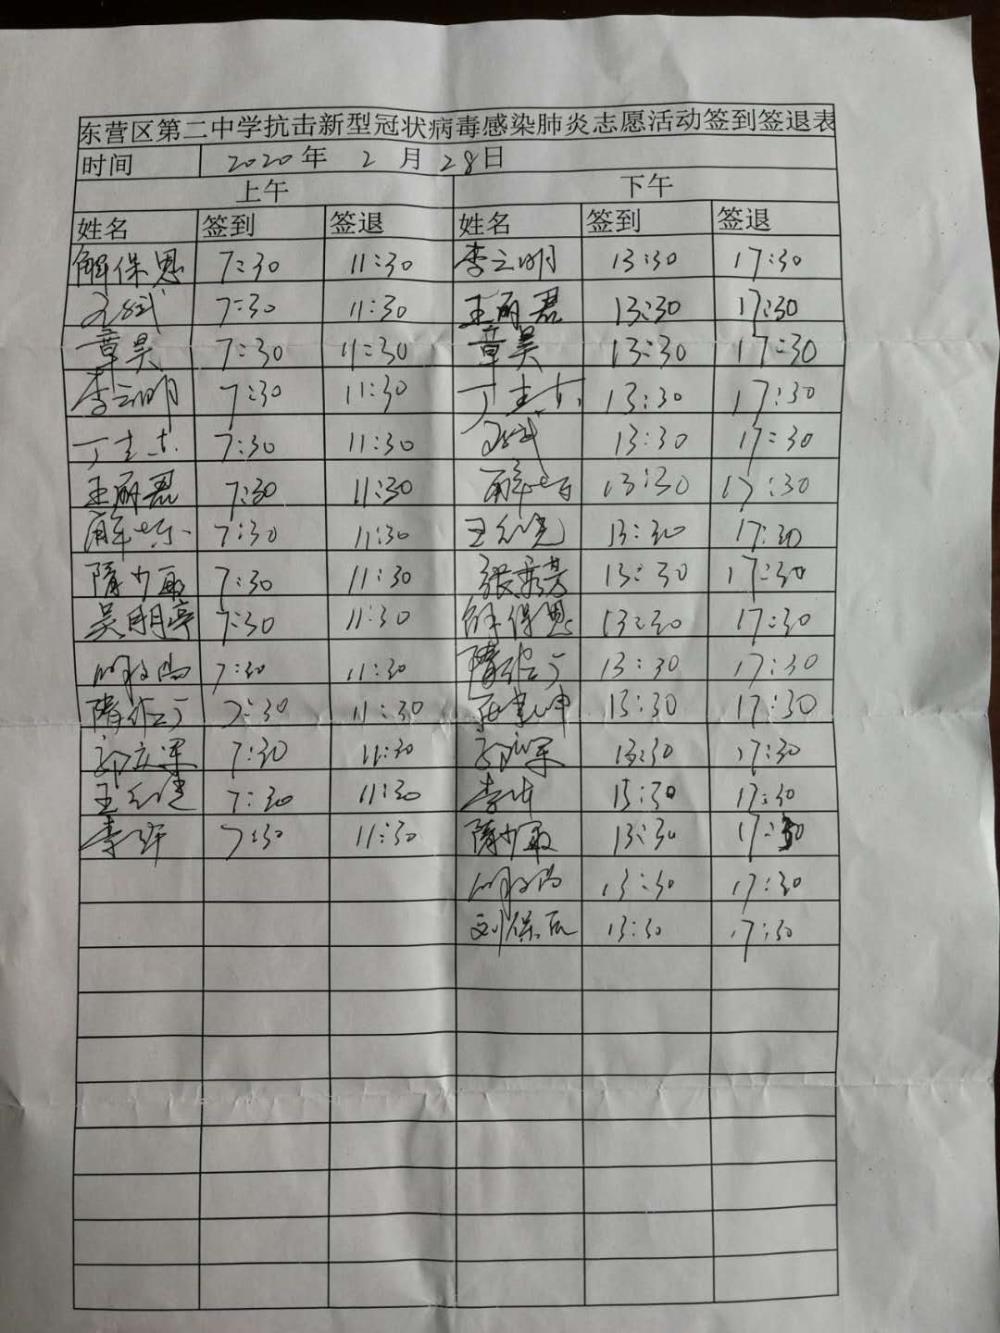 东营区第二中学抗击新型冠状病毒感染肺炎志愿活动签到签退表
时间 2020年 2 月 28日
上午 下午
姓名 签到 签退 姓名 签到 签退
解保恩 7:30 11:30 李云明 13:30 17:30
7:30 11:30 王丽君 13:30 17:30
章昊 7:30 11:30 章昊 13:30 17:30
李云明 7:30 11:30 丁志东 13:30 17:30
丁志东 7:30 11:30 13:30 17:30
王丽君 7:30 11:30 13:30 17:30
7:30 11:30 13:30 17:30
隋少敏 7:30 11:30 张秀芳 13:30 17:30
吴明亭 7:30 11:30 解保恩 13:30 17:30
7:30 11:30 13:30 17:30
7:30 11:30 13:30 17:30
7:30 11:30 13:30 17:30
7:30 11:30 13:30 17:30
7:30 11:30 隋少敏 13:30 17:30
13:30 17:30
13:30 17:30